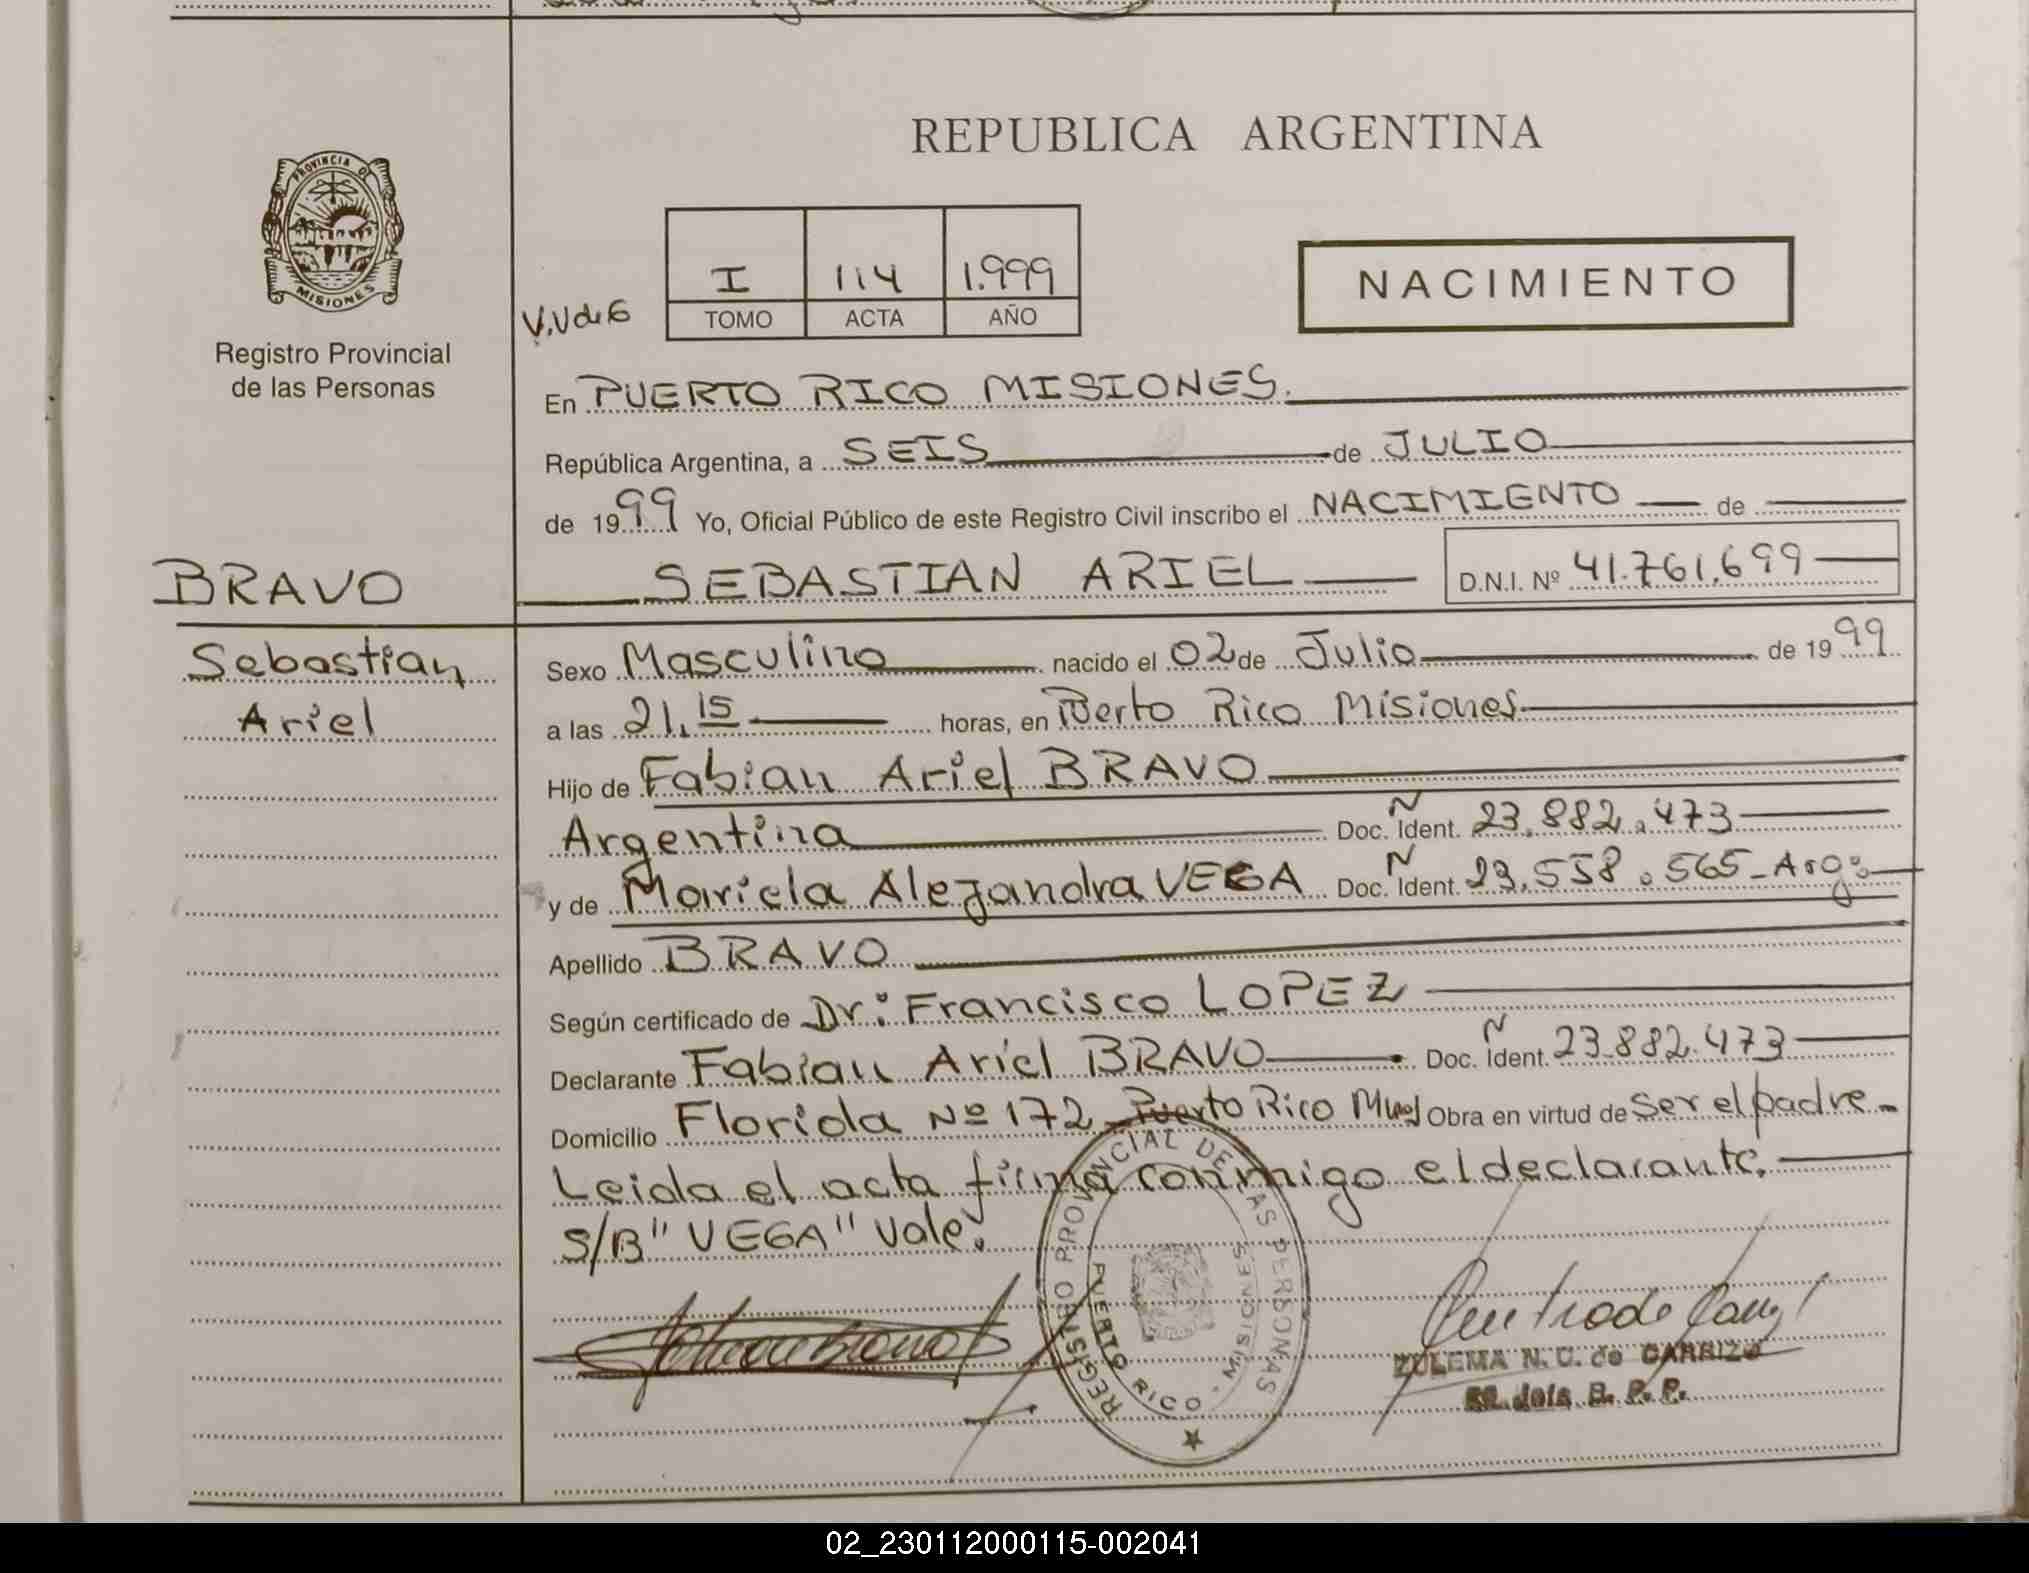 PROVINCIA DE
MISIONES
Registro Provincial
de las Personas
REPUBLICA ARGENTINA
I 114 1.999
TOMO ACTA AÑO
NACIMIENTO
En PUERTO RICO MISIONES.
República Argentina, a SEIS de JULIO
de 1999 Yo, Oficial Público de este Registro Civil inscribo el NACIMIENTO de
BRAVO
SEBASTIAN ARIEL D.N.I. Nº 41.761.699
Sebastian
Ariel
Sexo Masculino nacido el 02 de Julio de 1999
a las 21,15 horas, en Puerto Rico Misiones
Hijo de Fabian Ariel BRAVO
Argentina Doc. Ident. N 23.882.473
y de Mariela Alejandra VEGA Doc. Ident. N 23.558.565 - Arg:
Apellido BRAVO
Según certificado de Dr: Francisco LOPEZ
Declarante Fabian Ariel BRAVO Doc. Ident. N 23.882.473
Domicilio Florida Nº 172 - Puerto Rico Mnes Obra en virtud de ser el padre -
Leida el acta firma conmigo el declarante.
S/B "VEGA" Vale.
REGISTRO PROVINCIAL DE LAS PERSONAS
PUERTO RICO - MISIONES
ZULEMA N. C. de CARRIZO
R. P. P.
02_230112000115-002041